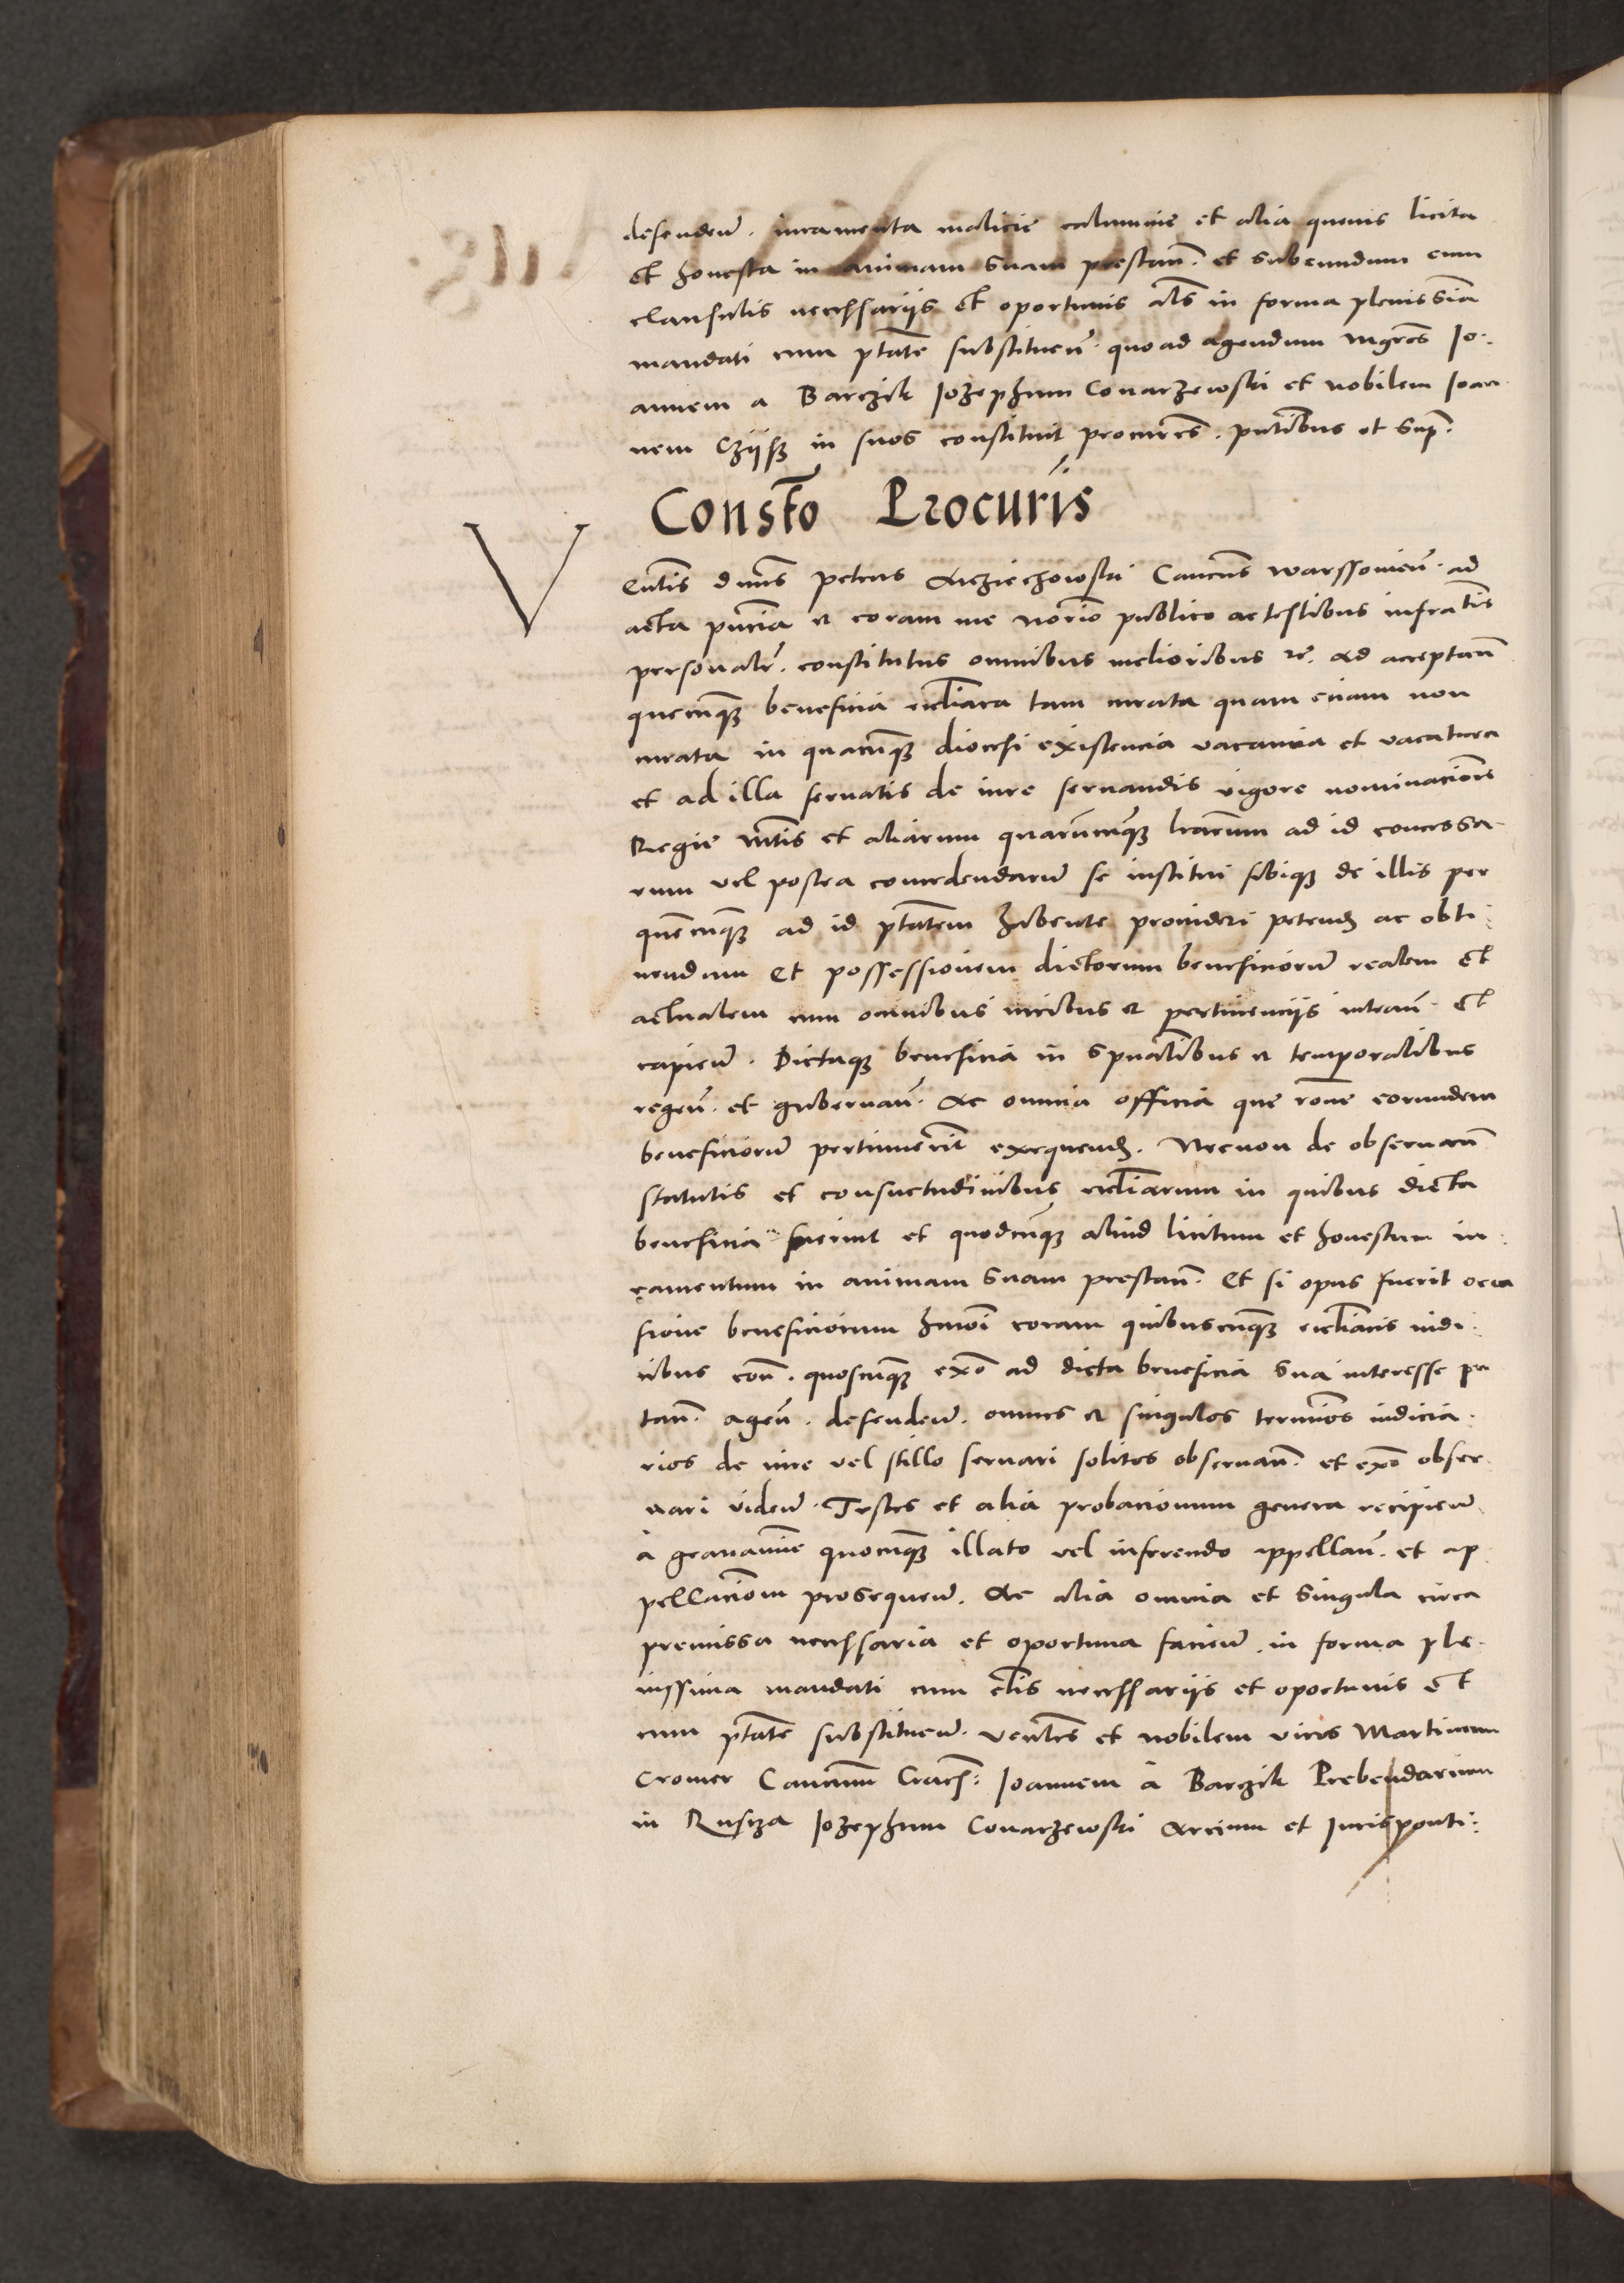 defendeñ. iuramenta malicie calumnie et alia quevis licita
et honesta in animam suam prestañ. et subeundum cum
clausulis necessariis et oportunis als in forma plenissīa
mandati cum ptāte substitueñ. quoad agendum mgros Jo-
annem a Barczik Jozephum Conarzewski et nobilem Joan
nem in suos constituit procures. pntibus ut sup.
Constō Procuris
Venlis dnus Petrus Cancus Warssovieñ. ad
acta pncia et coram me norio publico ac testibus infratis
personalr. constitutus omnibus melioribus etc. ad acceptañ
quecunqz beneficia ecliaca tam curata quam eciam non
curata in quacunqz diocesi existencia vacantia et vacatura
et ad illa servatis de iure servandis vigore nominacionis
Regie mtis et aliarum quarumcunqz lrarum ad id concessa-
rum vel postea concedendarū se institui sibiqz de illis per
quemcunqz ad id ptātem habente provideri petendum ac obti
nendum et possessionem dictorum beneficiorū realem et
actualem cum omnibus iuribus et pertinenciis intrañ. et
capieñ. Dictaqz beneficia in spualibus et temporalibus
regeñ. et gubernañ. Ac omnia officia que rone eorundem
beneficiorū pertinuerint exequend. Necnon de observañ
statutis et consuetudinibus ecliarum in quibus dicta
beneficia fuerint et quodcunqz aliud licitum et honestum iu
ramentum in animam suam prestañ. Et si opus fuerit occa
sione beneficiorum hmoi coram quibuscunqz ecliacis iudi
cibus coñ. quoscunqz ex° ad dicta beneficia sua interesse pu
tañ. ageñ. defendeñ. omnes et singulos terminos iudicia
rios de iure vel stillo servari solitos observañ. et ex° obser
vari videñ. Testes et alia probacionum genera recipieñ
a gravamine quocunqz illato vel inferendo appellañ. et ap
pellacionem prosequeñ. Ac alia omnia et singula circa
premissa necessaria et oportuna facieñ. in forma ple
nissima mandati cum clis necessariis et oportunis et
cum ptāte substitueñ. venles et nobilem viros Martinum
Cromer Cancum Joannem a Barczik Prebendarium
in Ruscza Jozephum Conarzewski Arcium et Juris ponti: